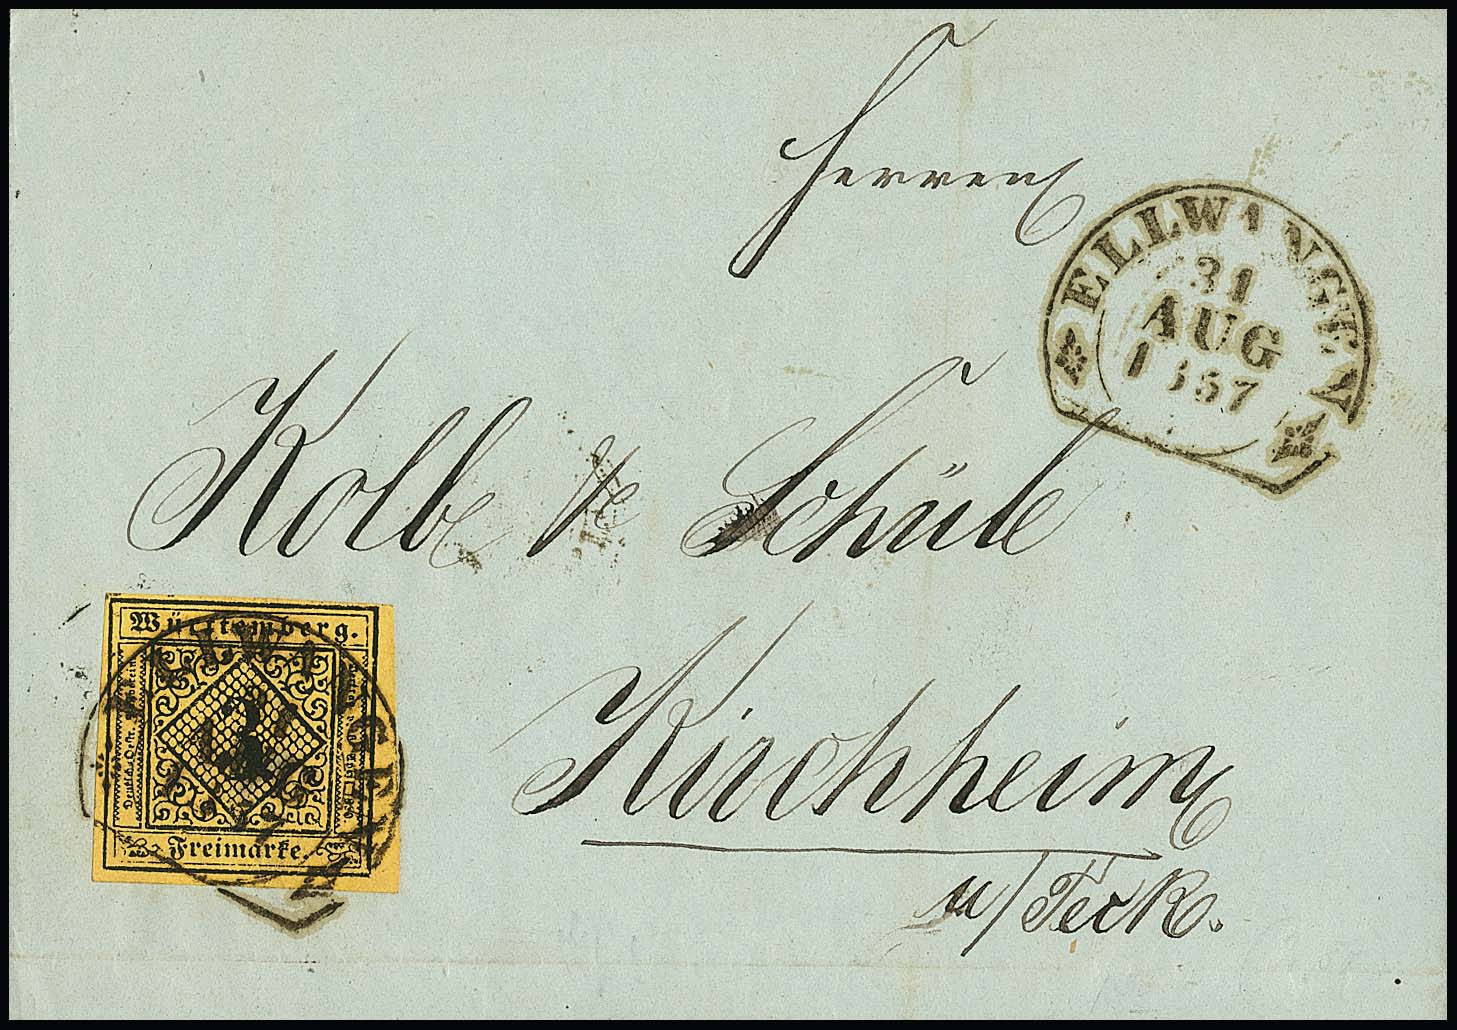 Herren
ELLWANGEN
31
AUG
1857
Kolb & Schüle
Württemberg.
ELLWANGEN
3
Freimarke.
Kirchheim
u/Teck.